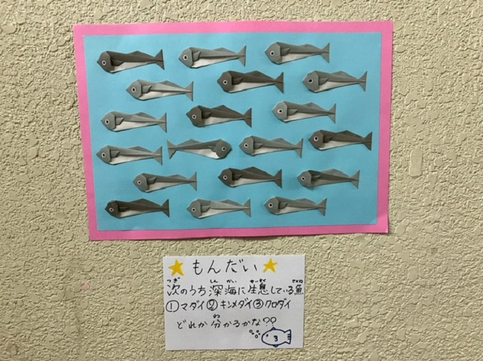 ★もんだい★
次のうち深海に生息している魚
①マダイ②キンメダイ③クロダイ
どれか分かるかな??